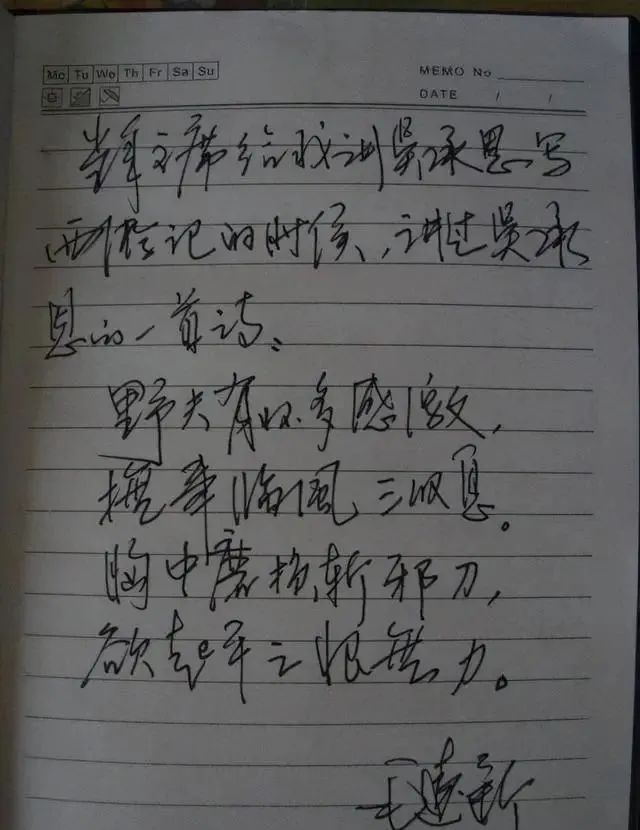 Mo Tu We Th Fr Sa Su
MEMO No
DATE / /
主席给我讲吴承恩写
西游记的时候,讲过吴承
恩的一首诗:
野夫有怀多感激,
抚事临风三叹息。
胸中磨损斩邪刀,
欲起平之恨無力。
毛远新